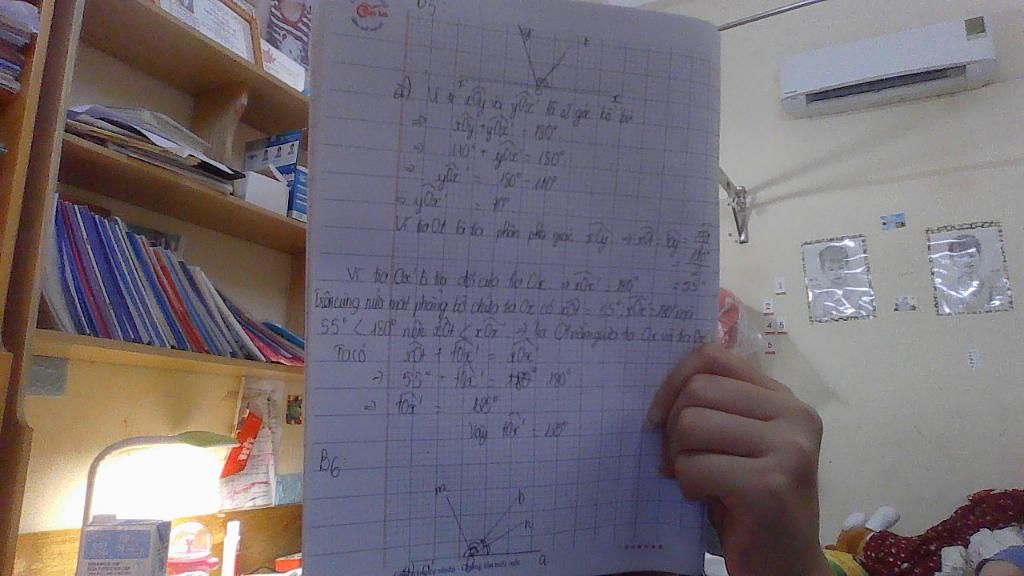 B5
y
t
x'
O
x
a) Vì xOy và yOx' là 2 góc kề bù
⇒ xOy + yOx' = 180°
⇒ 110° + yOx' = 180°
⇒ yOx' = 180° - 110°
⇒ yOx' = 70°
Vì tia Ot là tia phân giác xOy ⇒ xOt =
= 110°
2
= 55°
Vì tia Ox' là tia đối của tia Ox ⇒ xOx' = 180°
Trên cùng nửa mặt phẳng bờ chứa tia Ox có xOt = 55°; xOx' = 180° mà
55° < 180° nên xOt < xOx' ⇒ tia Ot nằm giữa tia Ox và tia Ox'
Ta có xOt + tOx' = xOx'
⇒ 55° + tOx' = 180°
⇒ tOx' = 125°
Vậy tOx' =
B6:
m
b
n
a